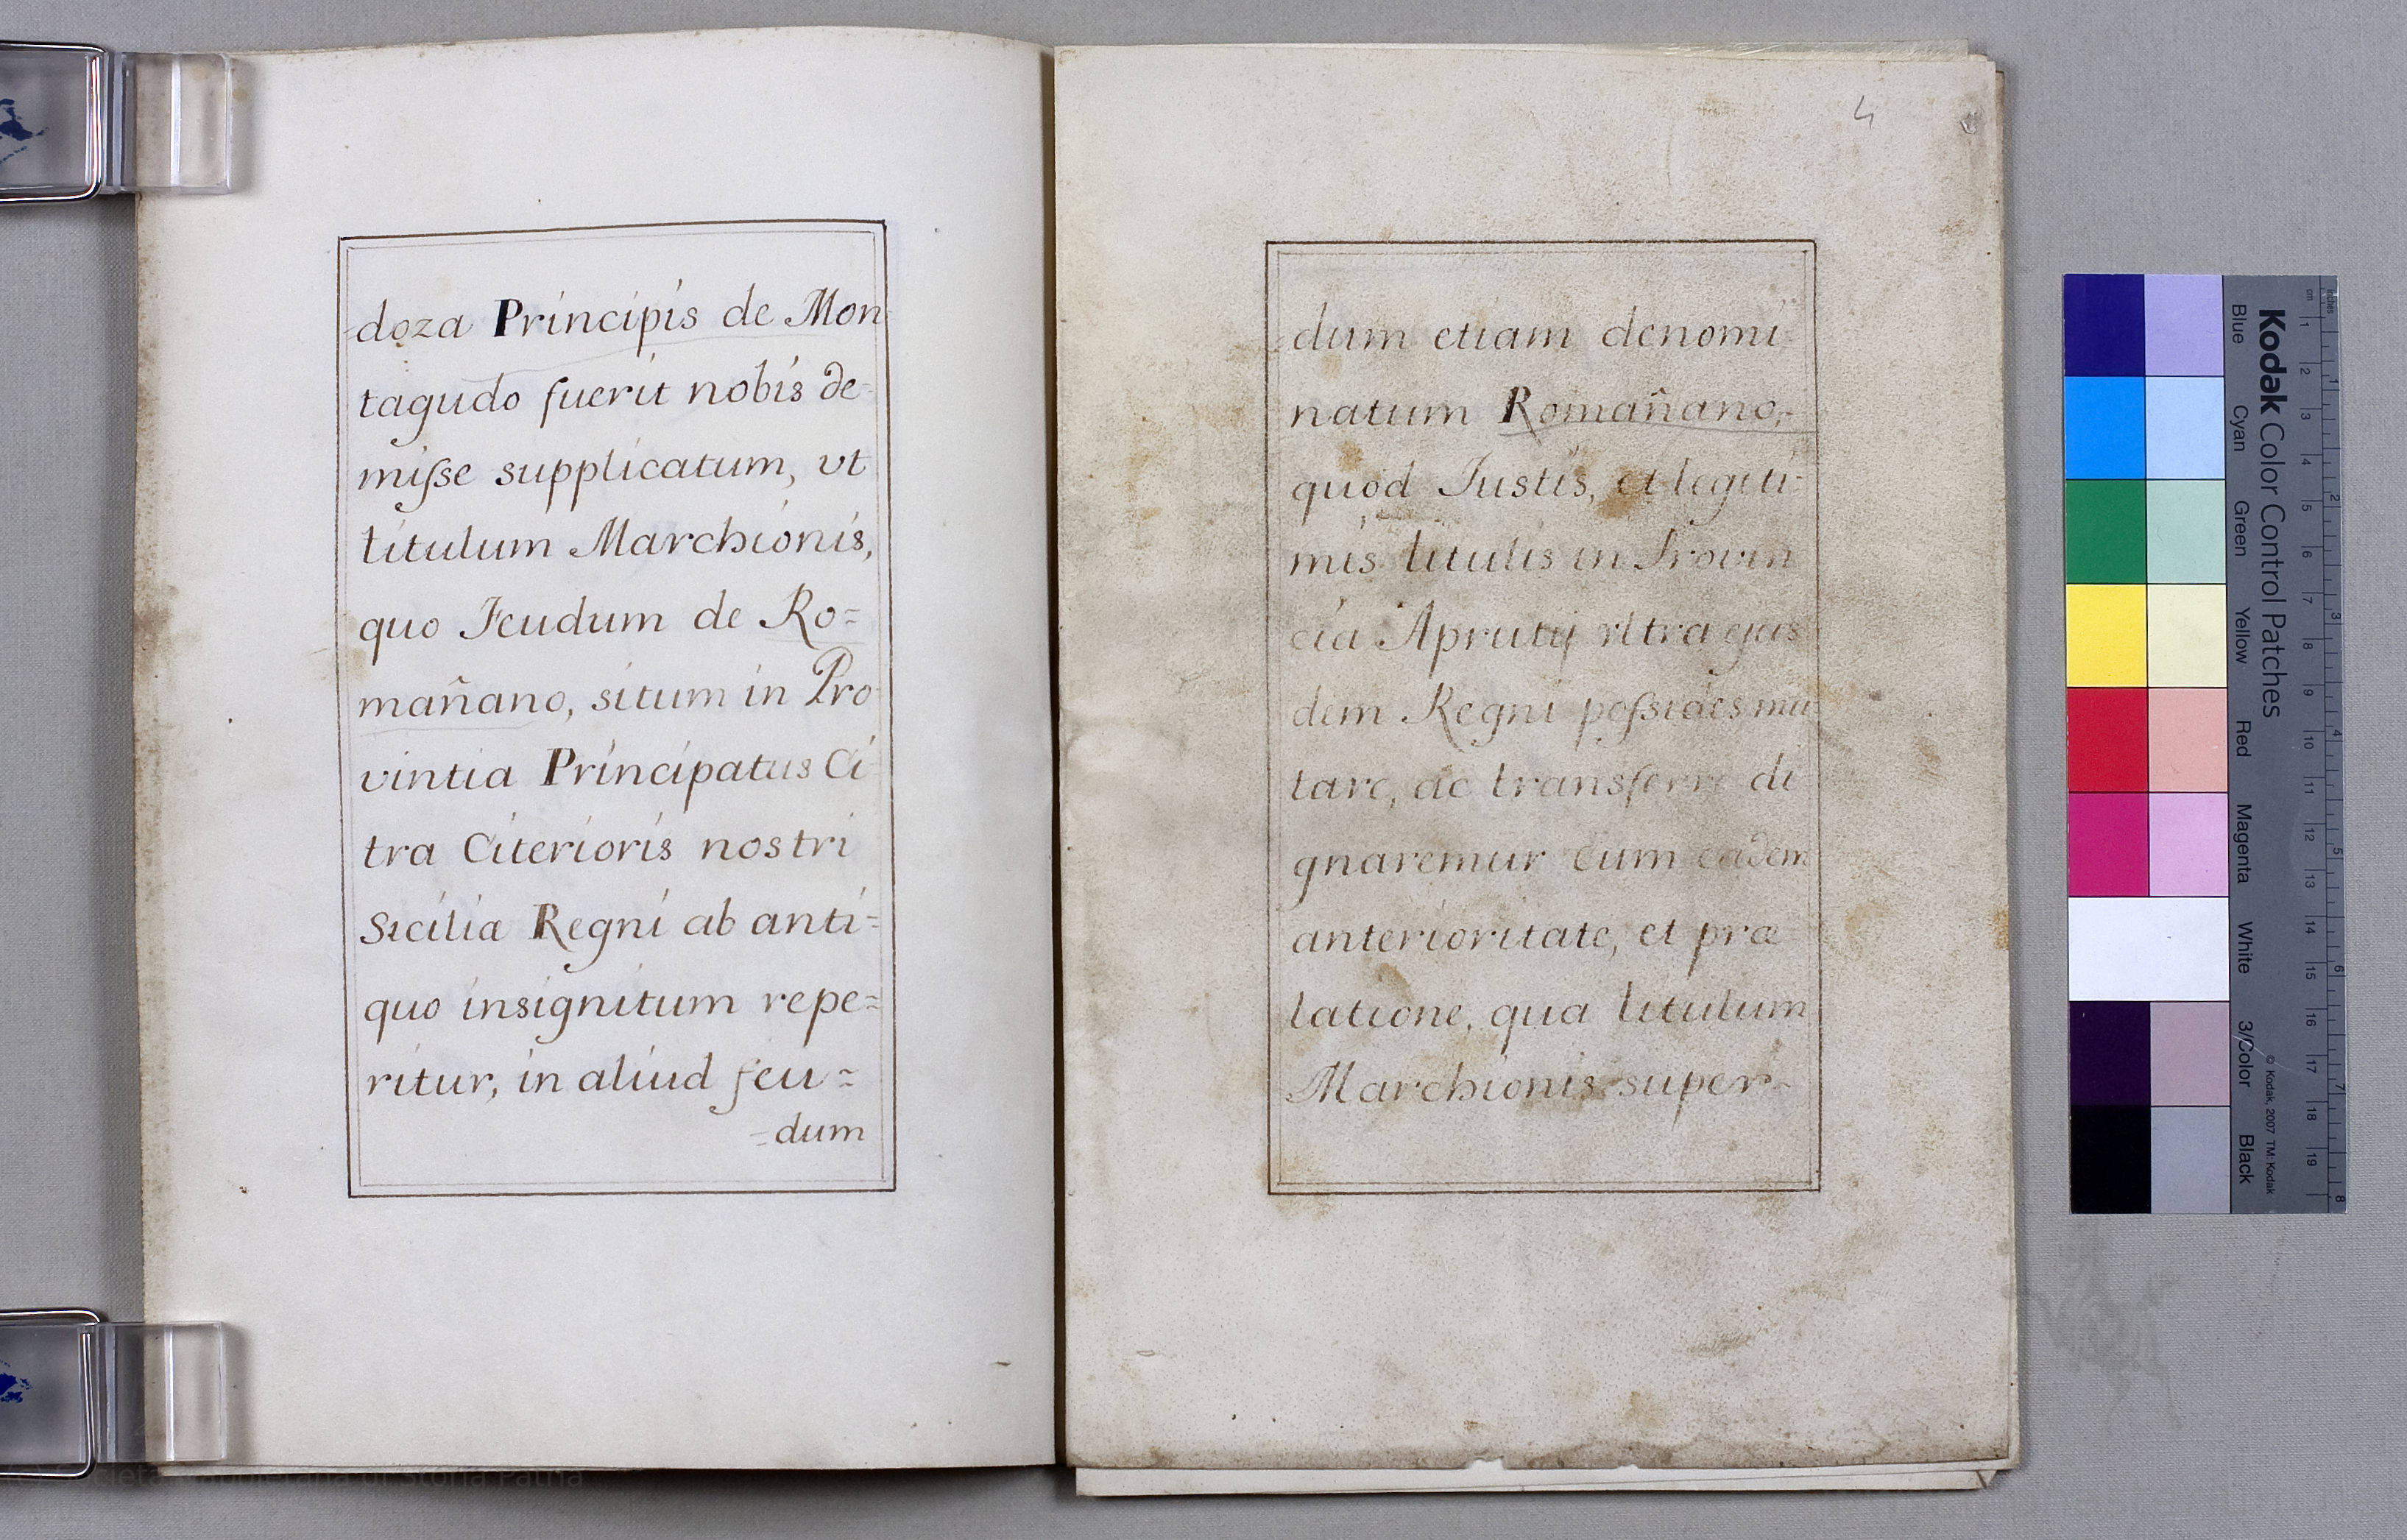 -doza Principis de Mon
tagudo fuerit nobis de-
miſse supplicatum, vt
titulum Marchionis,
quo Feudum de Ro=
mañano, situm in Pro
vintia Principatus Ci
tra Citerioris nostri
Siciliæ Regni ab anti=
quo insignitum repe=
ritur, in aliud feu=
=dum
4
dum etiam denomi-
natum Romañano,-
quod Iustis, et legiti-
mis titulis in Provin
cia Aprutij vltra ejus
dem Regni poſsides mu
tare, ac transferre di
gnaremur cum eadem
anterioritate, et præ
latione, qua titulum
Marchionis super-
Kodak Color Control Patches
Blue Cyan Green Yellow Red Magenta White 3/Color Black
© Kodak, 2007 TM: Kodak
inches 1 2 3 4 5 6 7 8
cm 1 2 3 4 5 6 7 8 9 10 11 12 13 14 15 16 17 18 19
di Storia Patria